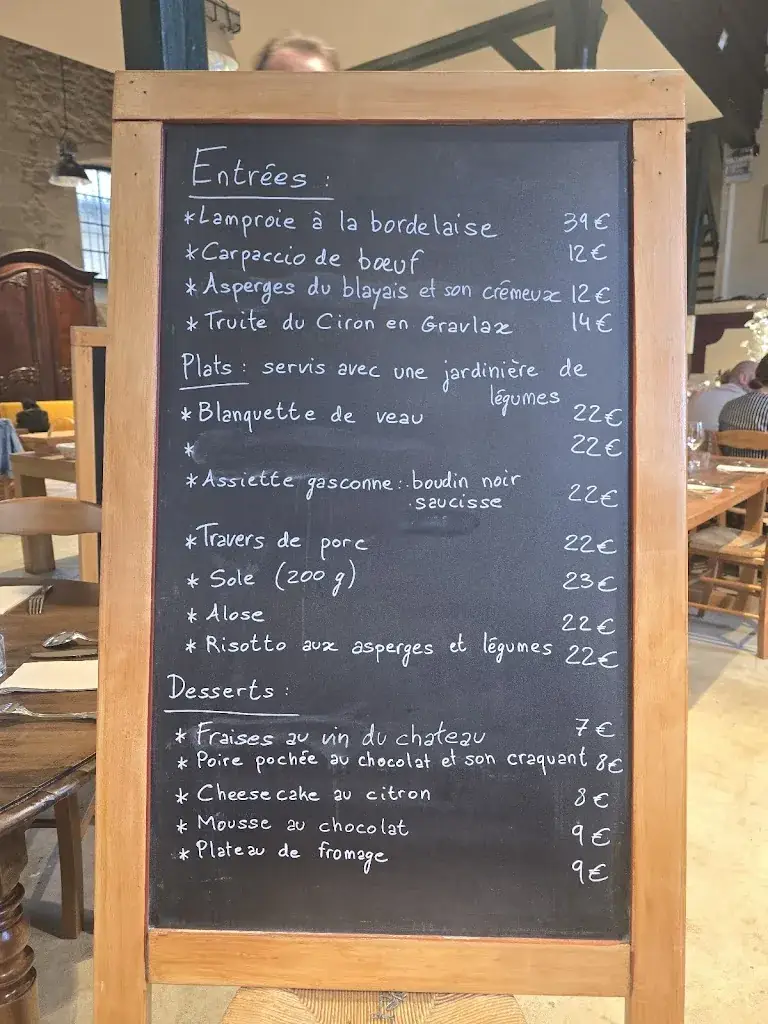 Entrées :
* Lamproie à la bordelaise 39€
* Carpaccio de bœuf 12€
* Asperges du blayais et son crémeux 12€
* Truite du Ciron en Gravlax 14€
Plats : servis avec une jardinière de
légumes
* Blanquette de veau 22€
* 22€
* Assiette gasconne : boudin noir
saucisse 22€
* Travers de porc 22€
* Sole (200 g) 23€
* Alose 22€
* Risotto aux asperges et légumes 22€
Desserts :
* Fraises au vin du chateau 7€
* Poire pochée au chocolat et son craquant 8€
* Cheese cake au citron 8€
* Mousse au chocolat 9€
* Plateau de fromage 9€